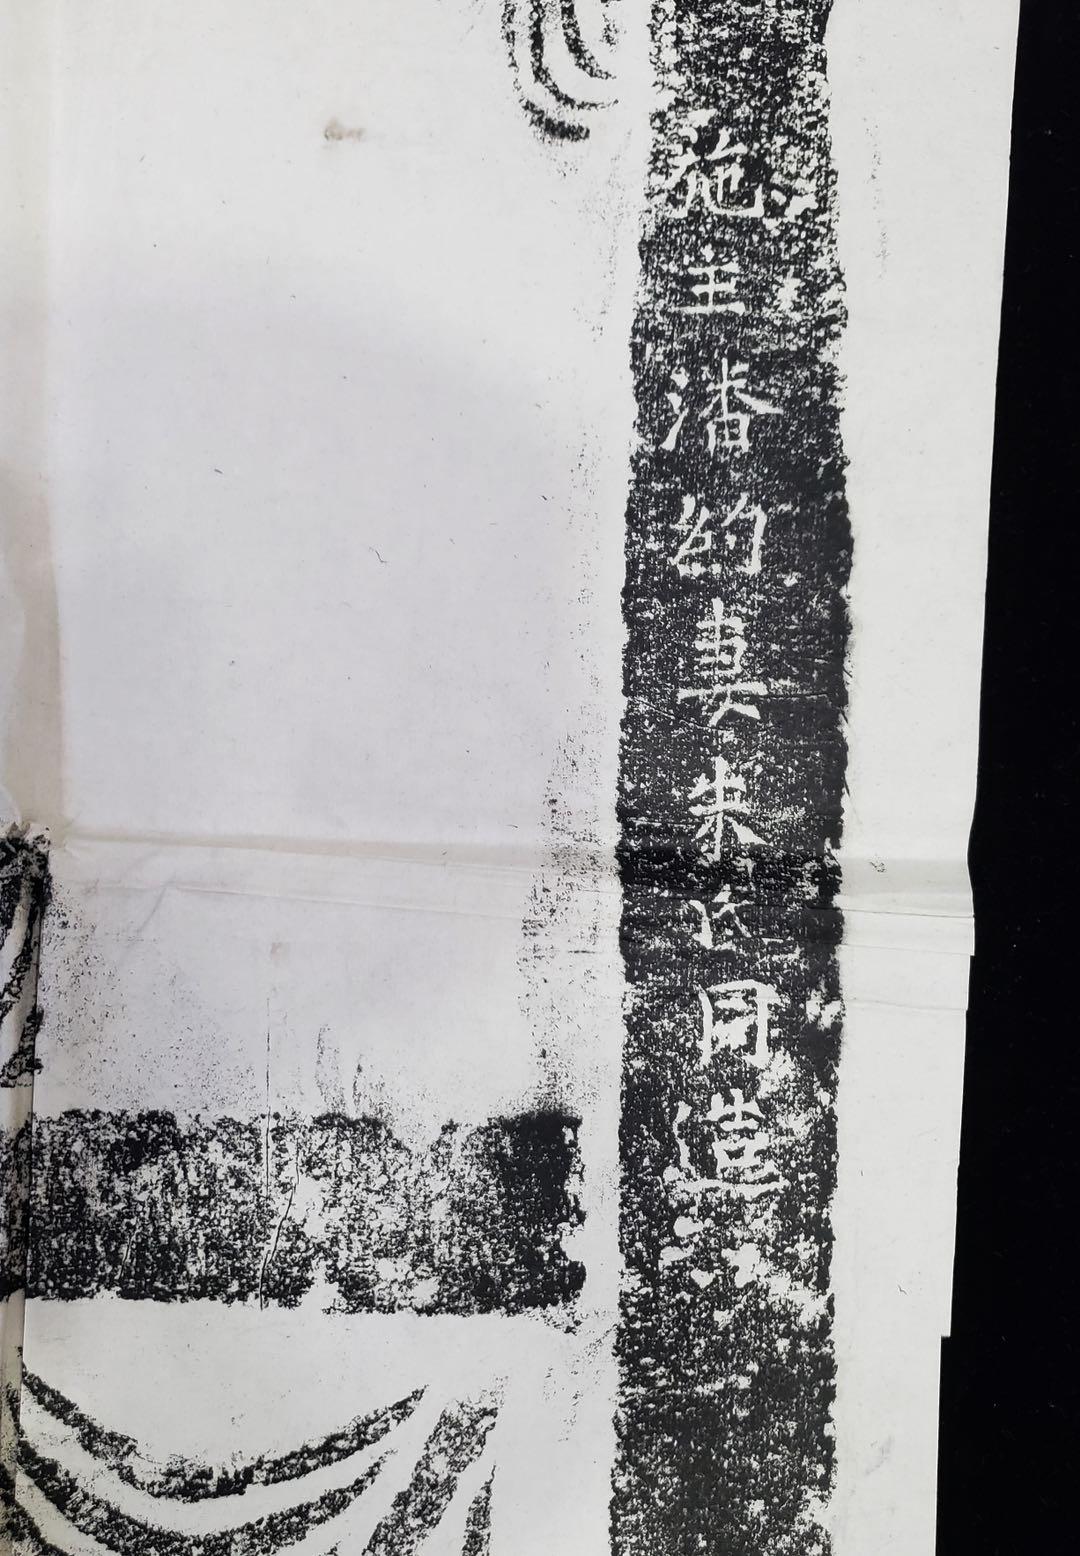 施主潘約妻朱氏同造